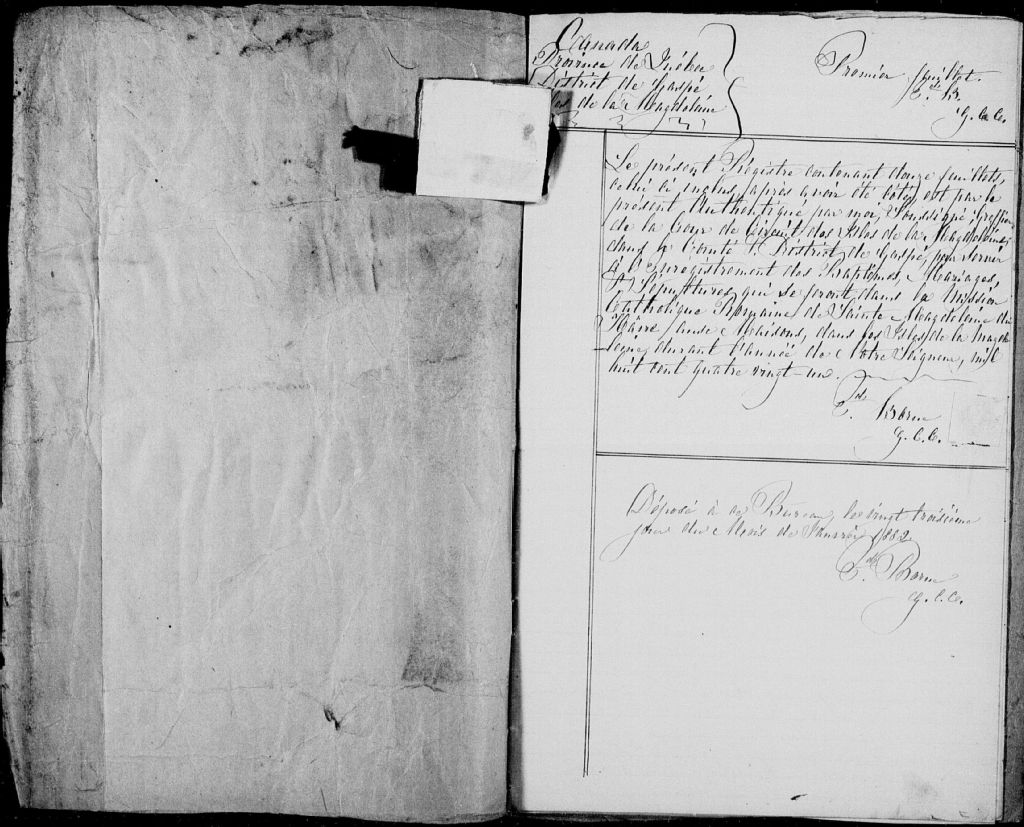 Canada
Province de Québec
District de Gaspé
Isles de la Magdeleine
Premier feuillet.
Ed. B.
G. C. C.
Le présent Régistre contenant douze feuillets,
celui ci inclus, après avoir été coté, est par le
présent Authentiqué par moi, Soussigné, Greffier
de la Cour de Circuit des Isles de la Magdeleine,
dans le Comté & District de Gaspé, pour servir
à l'Enregistrement des Baptêmes, Mariages,
& Sépultures qui se feront dans la Mission
Catholique Romaine de Sainte Magdeleine du
Hâvre aux Maisons, dans les Isles de la Magde
leine, durant l'année de Notre Seigneur, mil
huit cent quatre vingt-un.
Ed. Borne
G. C. C.
Déposé à ce Bureau, le vingt troisième
jour du Mois de Janvier 1882.
Ed. Borne
G. C. C.